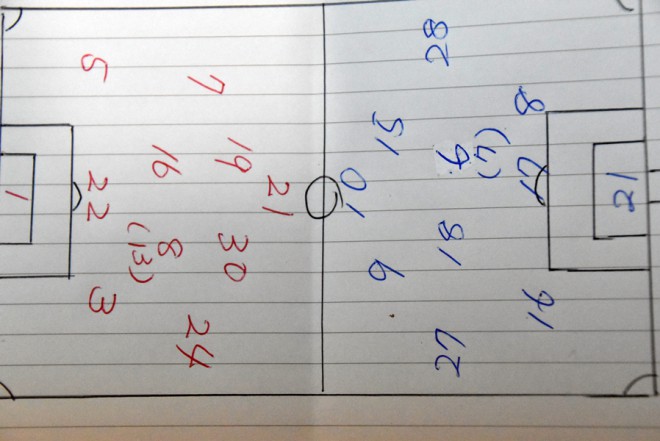 1
5
22
3
16
8
(13)
7
24
19
30
21
10
15
28
18
27
(4)
8
17
21